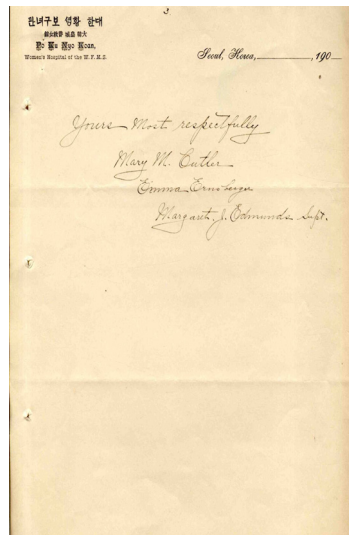 3.
관녀구보 영황 한대
館女救普 城皇 韓大
Po Ku Nyo Koan,
Women's Hospital of the W. F. M. S.
Seoul, Korea, 190
Yours Most respectfully
Mary M. Cutler
Emma Ernsberger
Margaret J. Edmunds Supt.